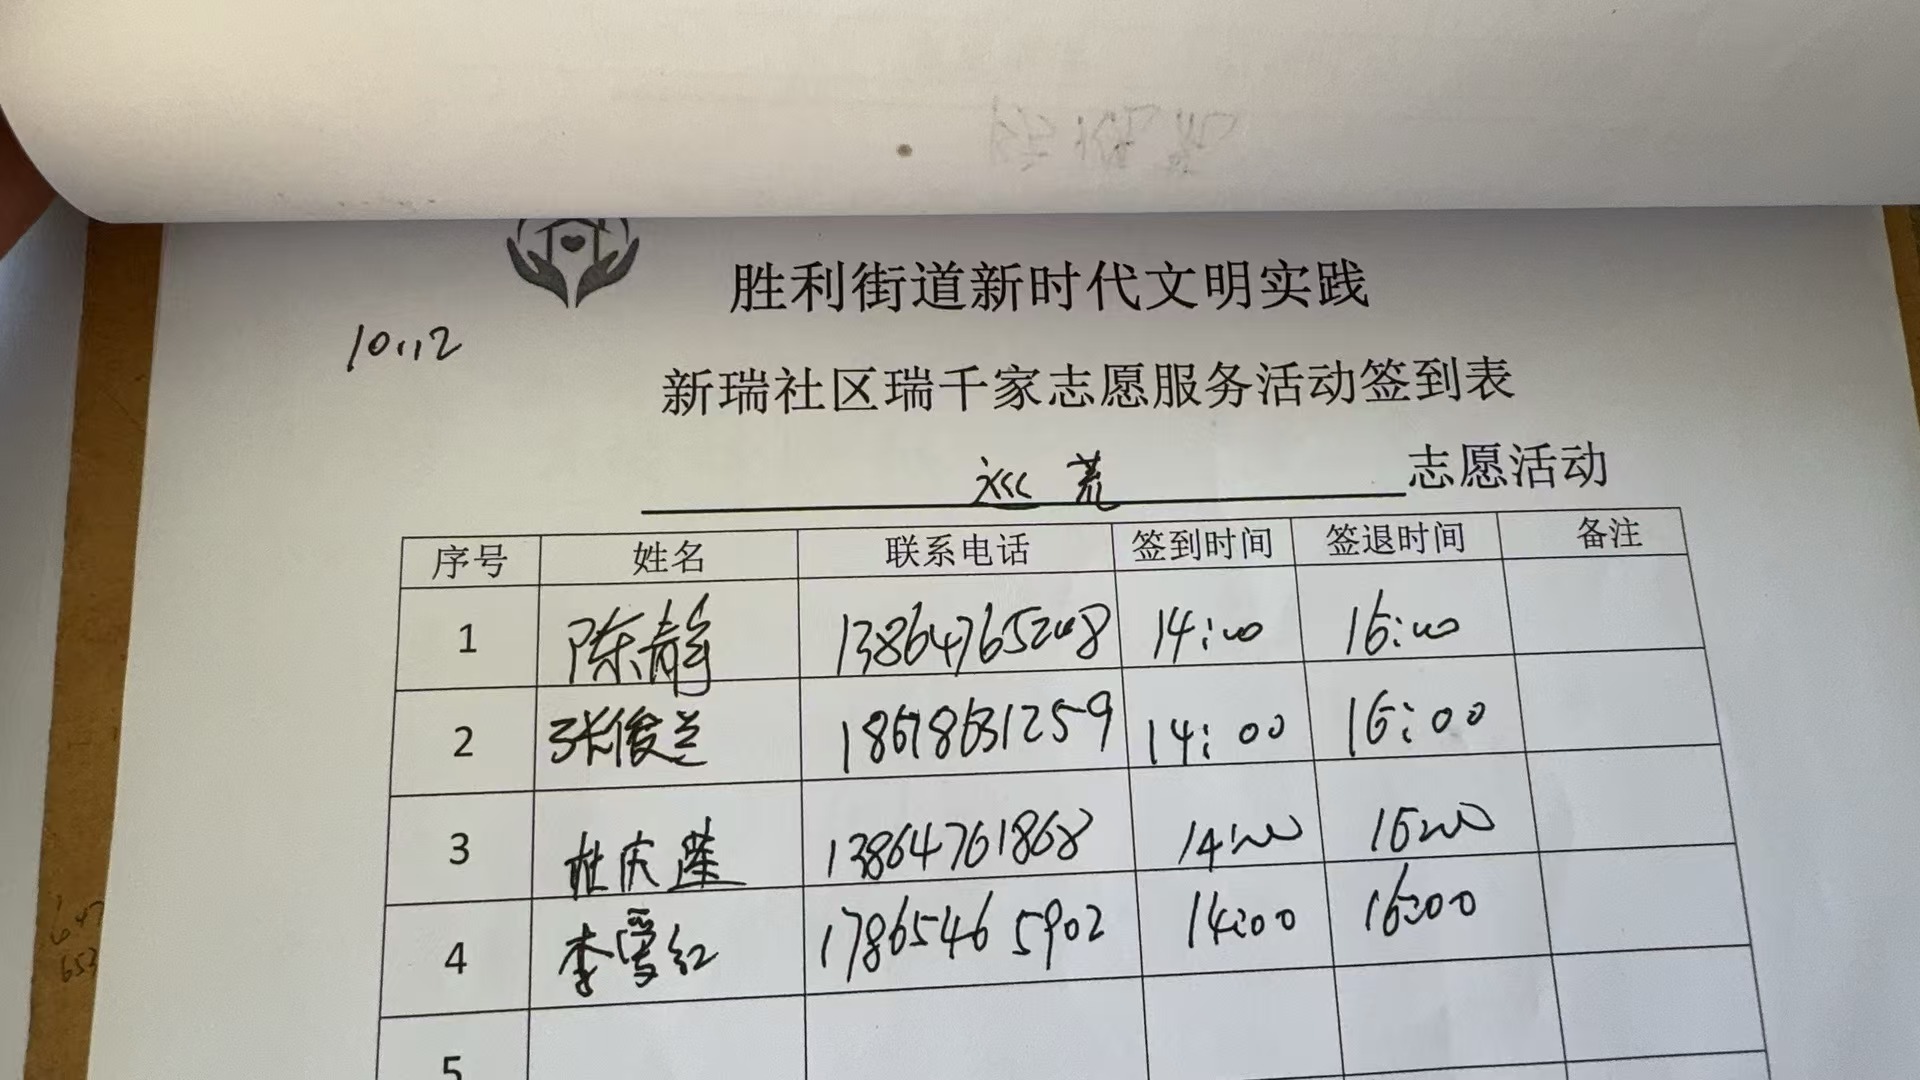 胜利街道新时代文明实践
10.12
新瑞社区瑞千家志愿服务活动签到表
巡荒 志愿活动
序号 姓名 联系电话 签到时间 签退时间 备注
1 陈静 13864765208 14:00 16:00
2 张俊兰 18678631259 14:00 16:00
3 杜庆莲 13864761868 14:00 16:00
4 李雪红 17865465902 14:00 16:00
5
647
653